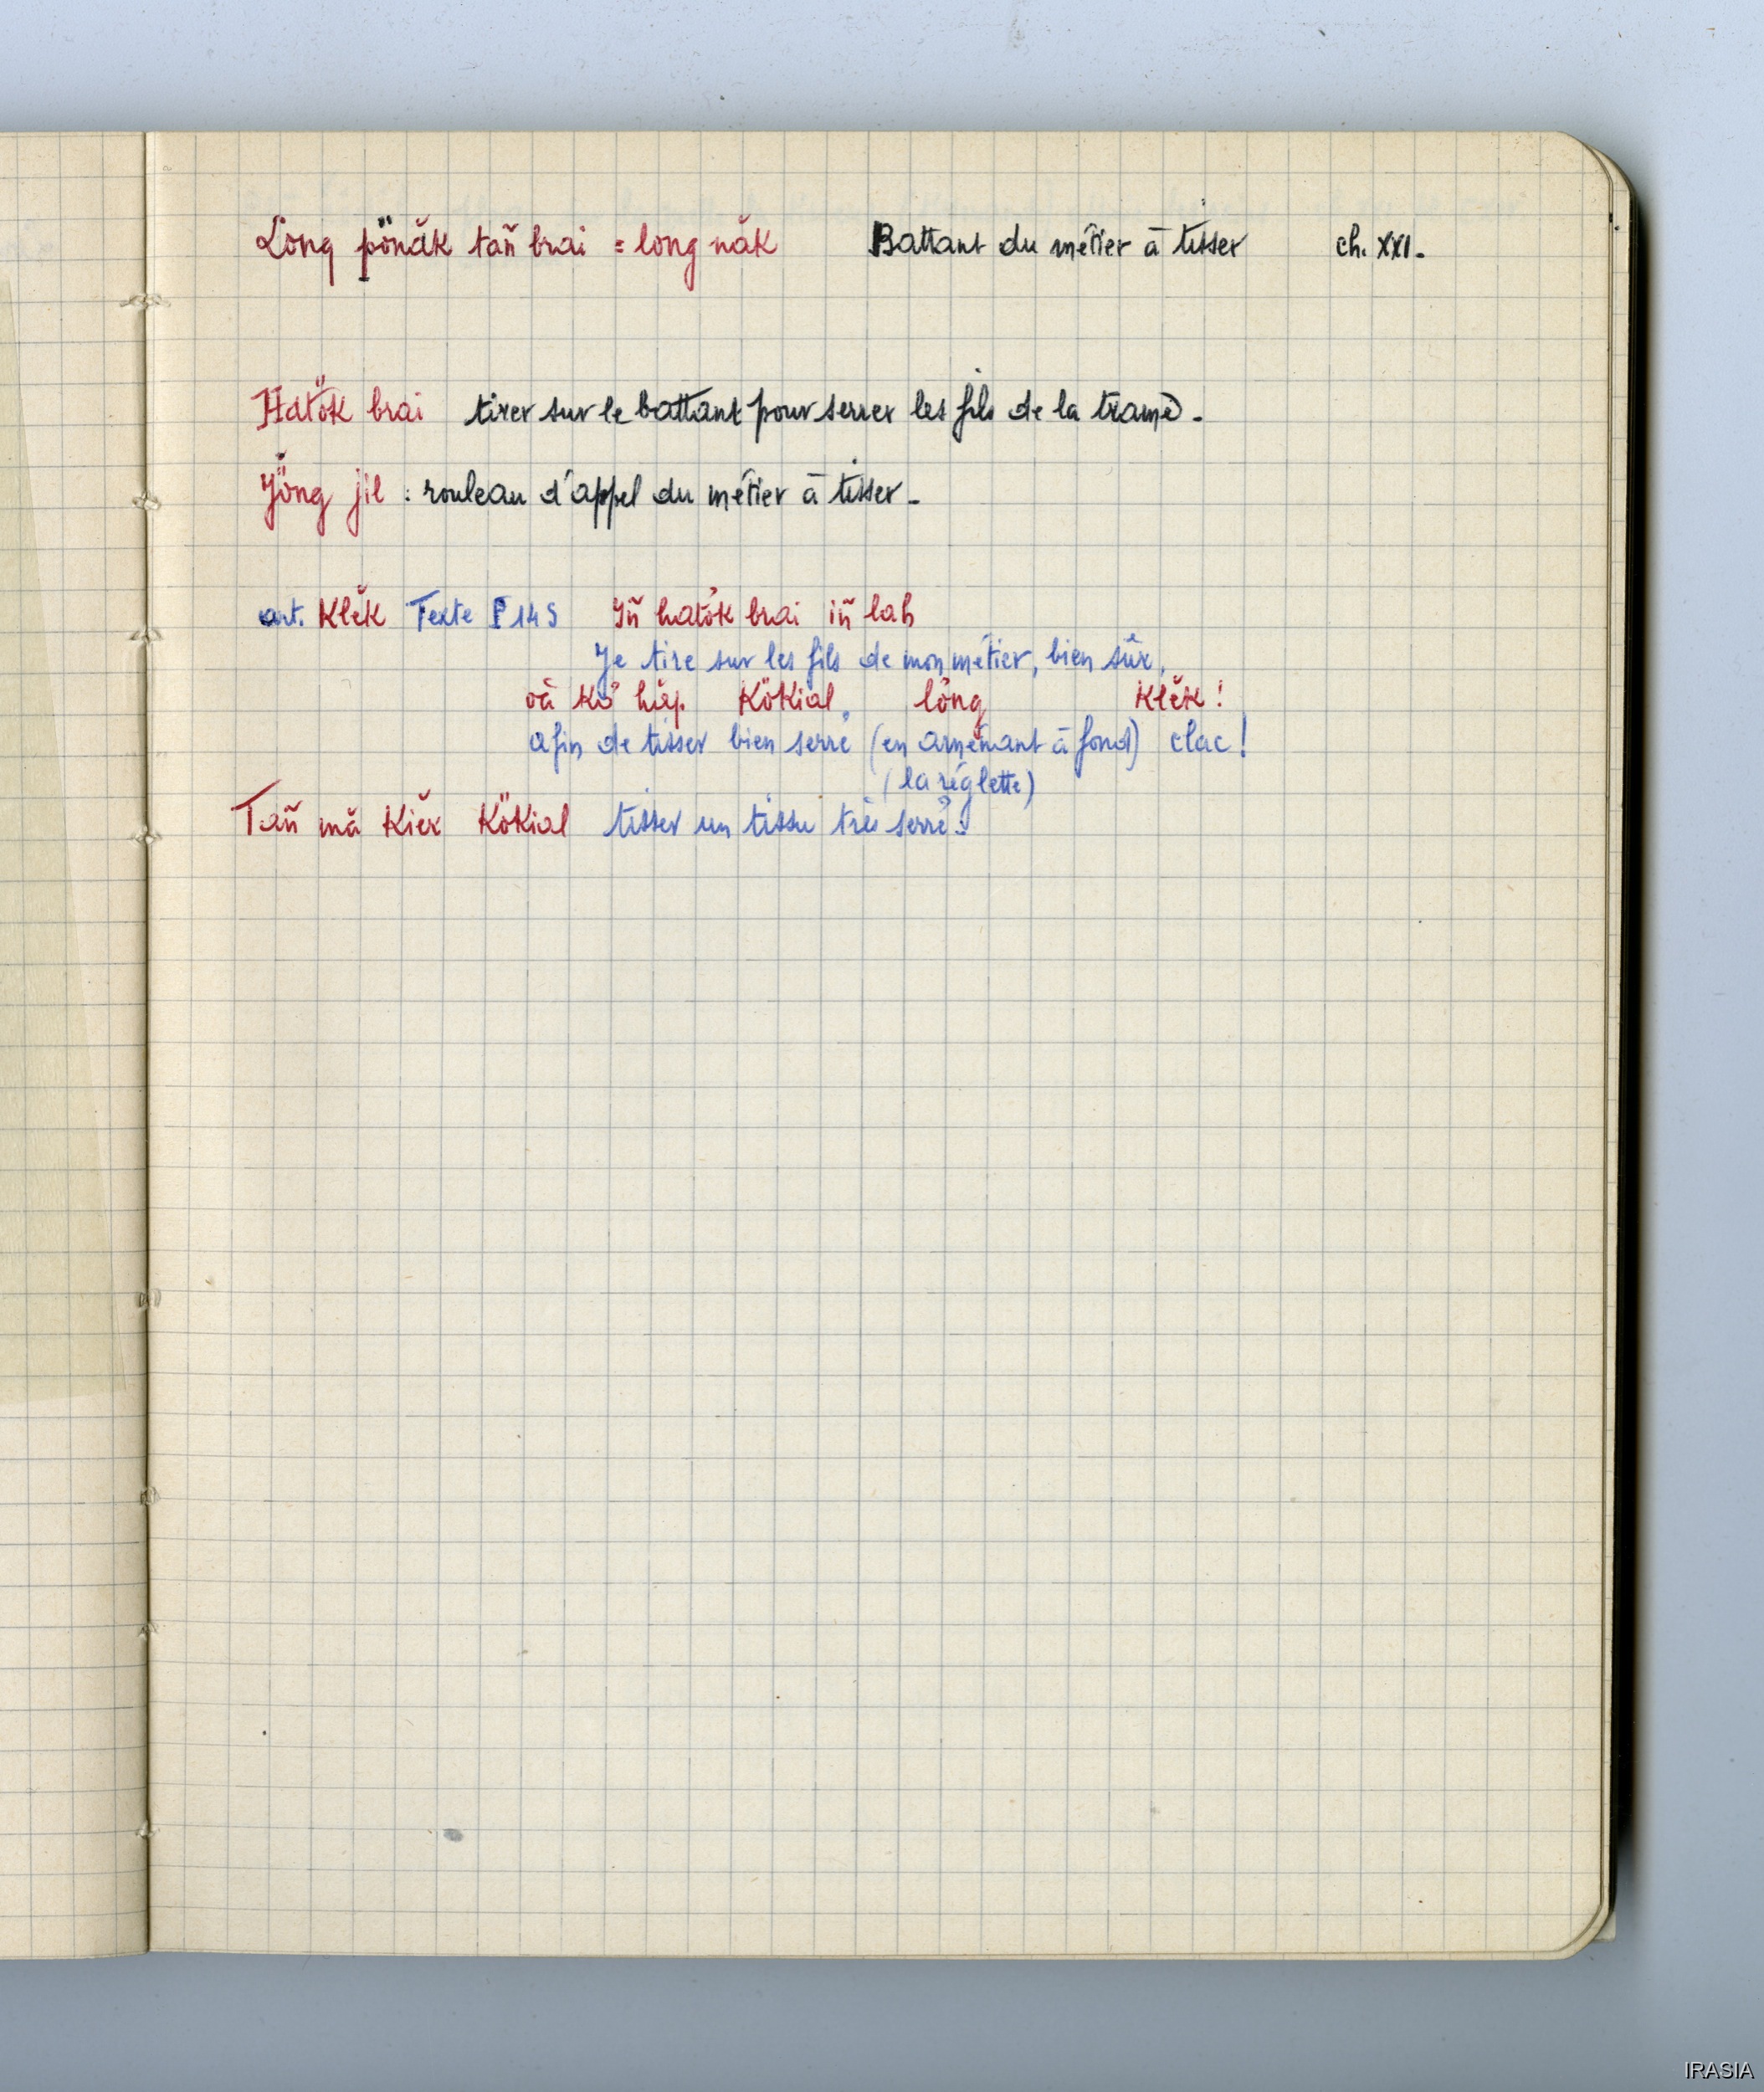 Long pönăk tañ brai = long năk Battant du métier à tisser ch. XXI.
Hatŏ̈k brai tirer sur le battant pour serrer les fils de la trame.
Jŏ̈ng jil : rouleau d'appel du métier à tisser.
art. Klĕk Texte I 145 Iñ hatŏk brai iñ lah
Je tire sur les fils de mon métier, bien sûr,
kơ̆ hăp Kökial, lŏng Klĕk !
afin de tisser bien serré (en amenant à fond) clac !
(la réglette)
Tañ mă Kiĕr Kökial tisser un tissu très serré.
IRASIA